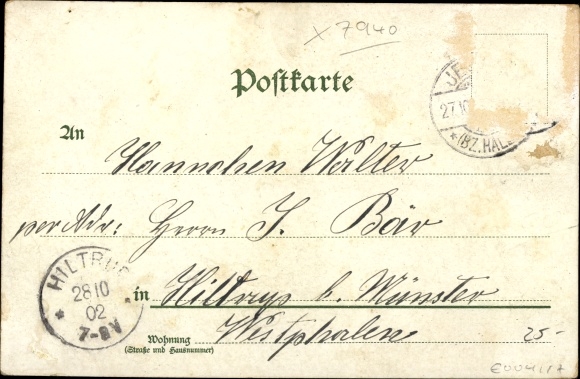 x 7940
Postkarte
JE
27.10
*(BZ. HAL
An
Hannchen Walter
per Adr: Herrn J. Bär
HILTRUP
28 10
02
7-8V
*
in Hiltrup b. Münster
Westphalen
Wohnung
(Straße und Hausnummer)
25-
E004117